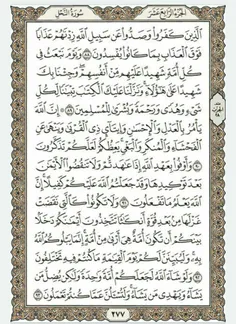 الجزء الرابع عشر سورة النحل
الذين كفروا وصدوا عن سبيل الله زدنهم عذابا
فوق العذاب بما كانوا يفسدون ٨٨ ويوم نبعث في
كل أمة شهيدا عليهم من أنفسهم وجئنا بك
شهيدا على هؤلاء ونزلنا عليك الكتب تبينا لكل
شيء وهدى ورحمة وبشرى للمسلمين ٨٩ إن الله
يأمر بالعدل والإحسن وإيتاي ذي القربى وينهى عن
الفحشاء والمنكر والبغي يعظكم لعلكم تذكرون
٩٠ وأوفوا بعهد الله إذا عهدتم ولا تنقضوا الأيمن
بعد توكيدها وقد جعلتم الله عليكم كفيلا إن
الله يعلم ما تفعلون ٩١ ولا تكونوا كالتي نقضت
غزلها من بعد قوة أنكثا تتخذون أيمنكم دخلا
بينكم أن تكون أمة هي أربى من أمة إنما يبلوكم الله
به وليبينن لكم يوم القيمة ما كنتم فيه تختلفون ٩٢
ولو شاء الله لجعلكم أمة وحدة ولكن يضل من
يشاء ويهدي من يشاء ولتسئلن عما كنتم تعملون ٩٣
٢٧٧